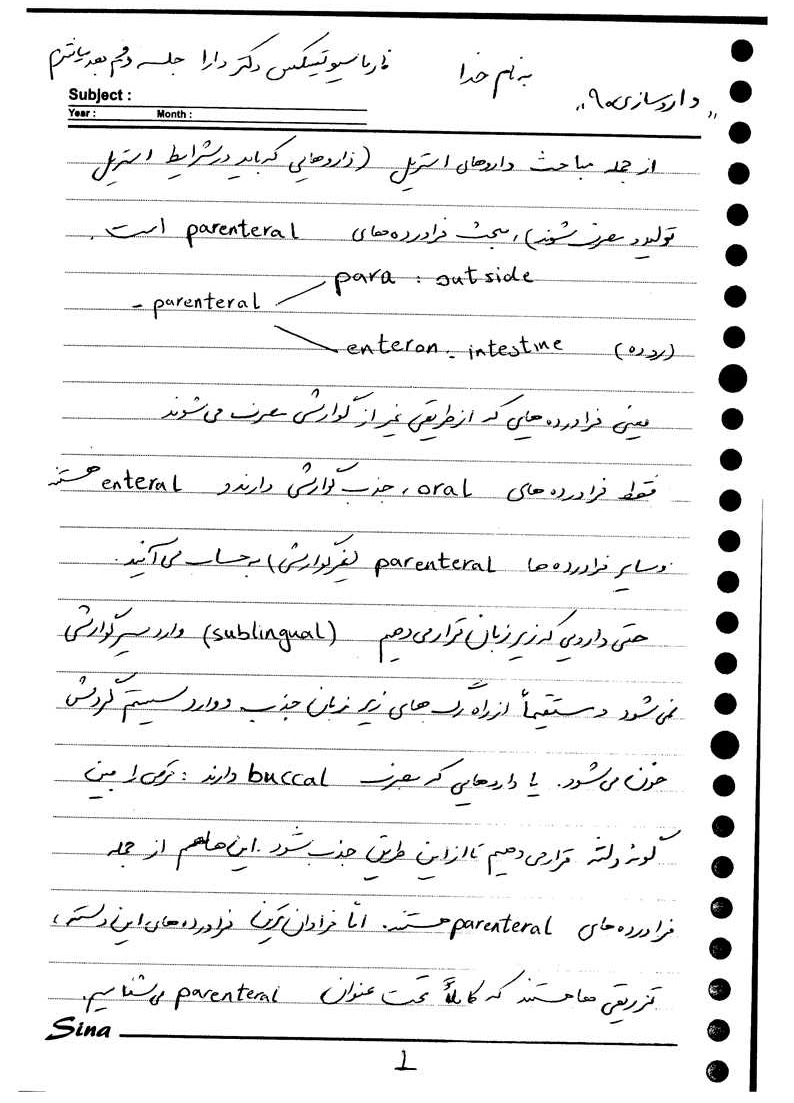 به نام خدا
فارماسیوتیکس دکتر دارا جلسه دوم بعد میانترم
"داروسازی ۹۰"
Subject :
Year : Month :
از جمله مباحث داروهای استریل (داروهایی که باید در شرایط استریل
تولید و مصرف شوند)، مبحث فرآورده های parenteral است.
para : outside
- parenteral
enteron : intestine (روده)
یعنی فرآورده هایی که از طریقی غیر از گوارشی مصرف می شوند
فقط فرآورده های oral، جذب گوارشی دارند و enteral هستند
و سایر فرآورده ها parenteral (غیرگوارشی) به حساب می آیند.
حتی دارویی که زیر زبان قرار می دهیم (sublingual) وارد سیر گوارشی
نمی شود و مستقیماً از راه رگ های زیر زبان جذب و وارد سیستم گردش
خون می شود. یا داروهایی که مصرف buccal دارند: قرص را بین
گونه و لثه قرار می دهیم تا از این طریق جذب شود. این ها هم از جمله
فرآورده های parenteral هستند. امّا فراوان ترین فرآورده های این دسته،
تزریقی ها هستند که کاملاً تحت عنوان parenteral می شناسیم.
Sina
1